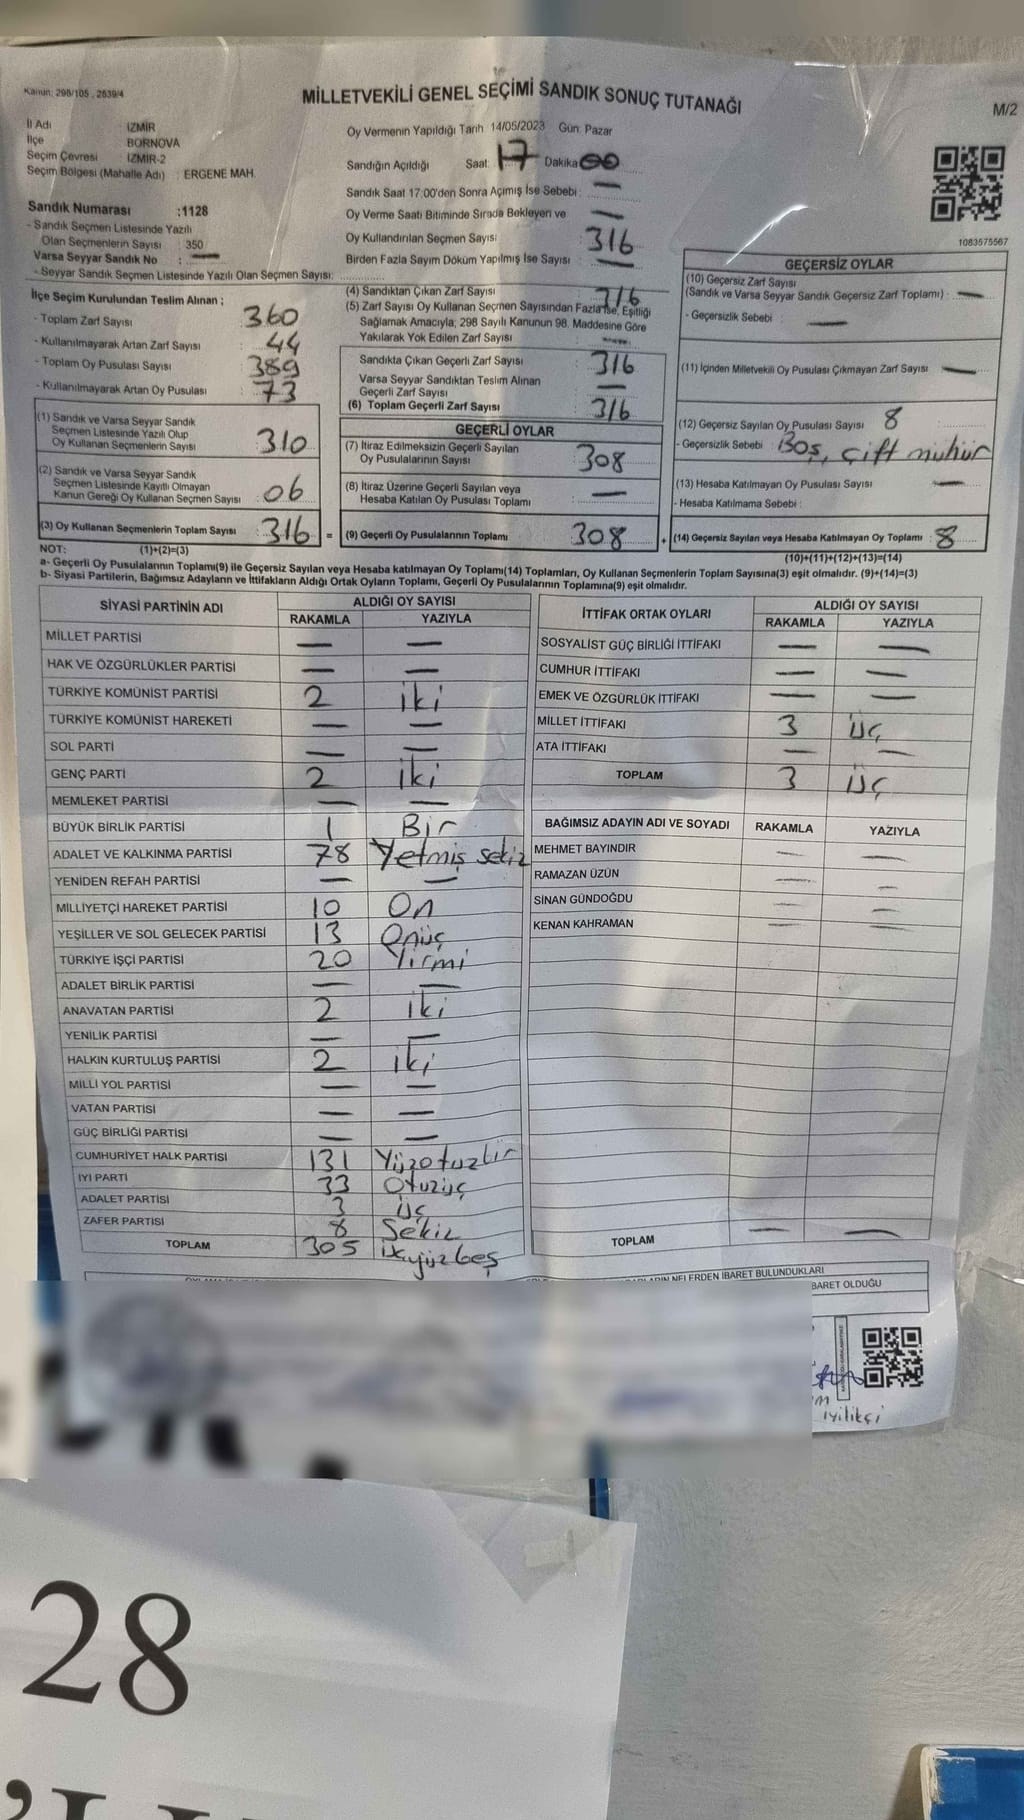 Kanun: 298/105 , 2839/4
MİLLETVEKİLİ GENEL SEÇİMİ SANDIK SONUÇ TUTANAĞI
M/2
İl Adı İZMİR
İlçe BORNOVA
Seçim Çevresi İZMİR-2
Seçim Bölgesi (Mahalle Adı) : ERGENE MAH.
Sandık Numarası :1128
- Sandık Seçmen Listesinde Yazılı
Olan Seçmenlerin Sayısı : 350
Varsa Seyyar Sandık No : —
- Seyyar Sandık Seçmen Listesinde Yazılı Olan Seçmen Sayısı:
Oy Vermenin Yapıldığı Tarih 14/05/2023 Gün: Pazar
Sandığın Açıldığı Saat: 17 Dakika 00
Sandık Saat 17:00'den Sonra Açımış İse Sebebi : —
Oy Verme Saati Bitiminde Sırada Bekleyen ve —
Oy Kullandırılan Seçmen Sayısı : 316
Birden Fazla Sayım Döküm Yapılmış İse Sayısı : —
1083575567
İlçe Seçim Kurulundan Teslim Alınan ;
- Toplam Zarf Sayısı : 360
- Kullanılmayarak Artan Zarf Sayısı : 44
- Toplam Oy Pusulası Sayısı : 389
- Kullanılmayarak Artan Oy Pusulası : 73
(1) Sandık ve Varsa Seyyar Sandık
Seçmen Listesinde Yazılı Olup
Oy Kullanan Seçmenlerin Sayısı : 310
(2) Sandık ve Varsa Seyyar Sandık
Seçmen Listesinde Kayıtlı Olmayan
Kanun Gereği Oy Kullanan Seçmen Sayısı : 06
(3) Oy Kullanan Seçmenlerin Toplam Sayısı : 316 =
(4) Sandıktan Çıkan Zarf Sayısı : 316
(5) Zarf Sayısı Oy Kullanan Seçmen Sayısından Fazla İse, Eşitliği
Sağlamak Amacıyla; 298 Sayılı Kanunun 98. Maddesine Göre
Yakılarak Yok Edilen Zarf Sayısı : —
Sandıkta Çıkan Geçerli Zarf Sayısı : 316
Varsa Seyyar Sandıktan Teslim Alınan
Geçerli Zarf Sayısı : —
(6) Toplam Geçerli Zarf Sayısı : 316
GEÇERLİ OYLAR
(7) İtiraz Edilmeksizin Geçerli Sayılan
Oy Pusulalarının Sayısı : 308
(8) İtiraz Üzerine Geçerli Sayılan veya
Hesaba Katılan Oy Pusulası Toplamı : —
(9) Geçerli Oy Pusulalarının Toplamı : 308 +
GEÇERSİZ OYLAR
(10) Geçersiz Zarf Sayısı
(Sandık ve Varsa Seyyar Sandık Geçersiz Zarf Toplamı) : —
- Geçersizlik Sebebi : —
(11) İçinden Milletvekili Oy Pusulası Çıkmayan Zarf Sayısı : —
(12) Geçersiz Sayılan Oy Pusulası Sayısı : 8
- Geçersizlik Sebebi : Boş, çift mühür
(13) Hesaba Katılmayan Oy Pusulası Sayısı : —
- Hesaba Katılmama Sebebi :
(14) Geçersiz Sayılan veya Hesaba Katılmayan Oy Toplamı : 8
NOT: (1)+(2)=(3)
(10)+(11)+(12)+(13)=(14)
a- Geçerli Oy Pusulalarının Toplamı(9) ile Geçersiz Sayılan veya Hesaba katılmayan Oy Toplamı(14) Toplamları, Oy Kullanan Seçmenlerin Toplam Sayısına(3) eşit olmalıdır. (9)+(14)=(3)
b- Siyasi Partilerin, Bağımsız Adayların ve İttifakların Aldığı Ortak Oyların Toplamı, Geçerli Oy Pusulalarının Toplamına(9) eşit olmalıdır.
SİYASİ PARTİNİN ADI ALDIĞI OY SAYISI
RAKAMLA YAZIYLA
MİLLET PARTİSİ — —
HAK VE ÖZGÜRLÜKLER PARTİSİ — —
TÜRKİYE KOMÜNİST PARTİSİ 2 iki
TÜRKİYE KOMÜNİST HAREKETİ — —
SOL PARTİ — —
GENÇ PARTİ 2 iki
MEMLEKET PARTİSİ — —
BÜYÜK BİRLİK PARTİSİ 1 Bir
ADALET VE KALKINMA PARTİSİ 78 Yetmiş sekiz
YENİDEN REFAH PARTİSİ — —
MİLLİYETÇİ HAREKET PARTİSİ 10 On
YEŞİLLER VE SOL GELECEK PARTİSİ 13 Onüç
TÜRKİYE İŞÇİ PARTİSİ 20 Yirmi
ADALET BİRLİK PARTİSİ — —
ANAVATAN PARTİSİ 2 iki
YENİLİK PARTİSİ — —
HALKIN KURTULUŞ PARTİSİ 2 iki
MİLLİ YOL PARTİSİ — —
VATAN PARTİSİ — —
GÜÇ BİRLİĞİ PARTİSİ — —
CUMHURİYET HALK PARTİSİ 131 Yüzotuzbir
İYİ PARTİ 33 Otuzüç
ADALET PARTİSİ 3 üç
ZAFER PARTİSİ 8 Sekiz
TOPLAM 305 üçyüzbeş
İTTİFAK ORTAK OYLARI ALDIĞI OY SAYISI
RAKAMLA YAZIYLA
SOSYALİST GÜÇ BİRLİĞİ İTTİFAKI — —
CUMHUR İTTİFAKI — —
EMEK VE ÖZGÜRLÜK İTTİFAKI — —
MİLLET İTTİFAKI 3 üç
ATA İTTİFAKI — —
TOPLAM 3 üç
BAĞIMSIZ ADAYIN ADI VE SOYADI RAKAMLA YAZIYLA
MEHMET BAYINDIR — —
RAMAZAN ÜZÜN — —
SİNAN GÜNDOĞDU — —
KENAN KAHRAMAN — —
TOPLAM — —
NELERDEN İBARET BULUNDUKLARI
BARET OLDUĞU
iyilikçi
28